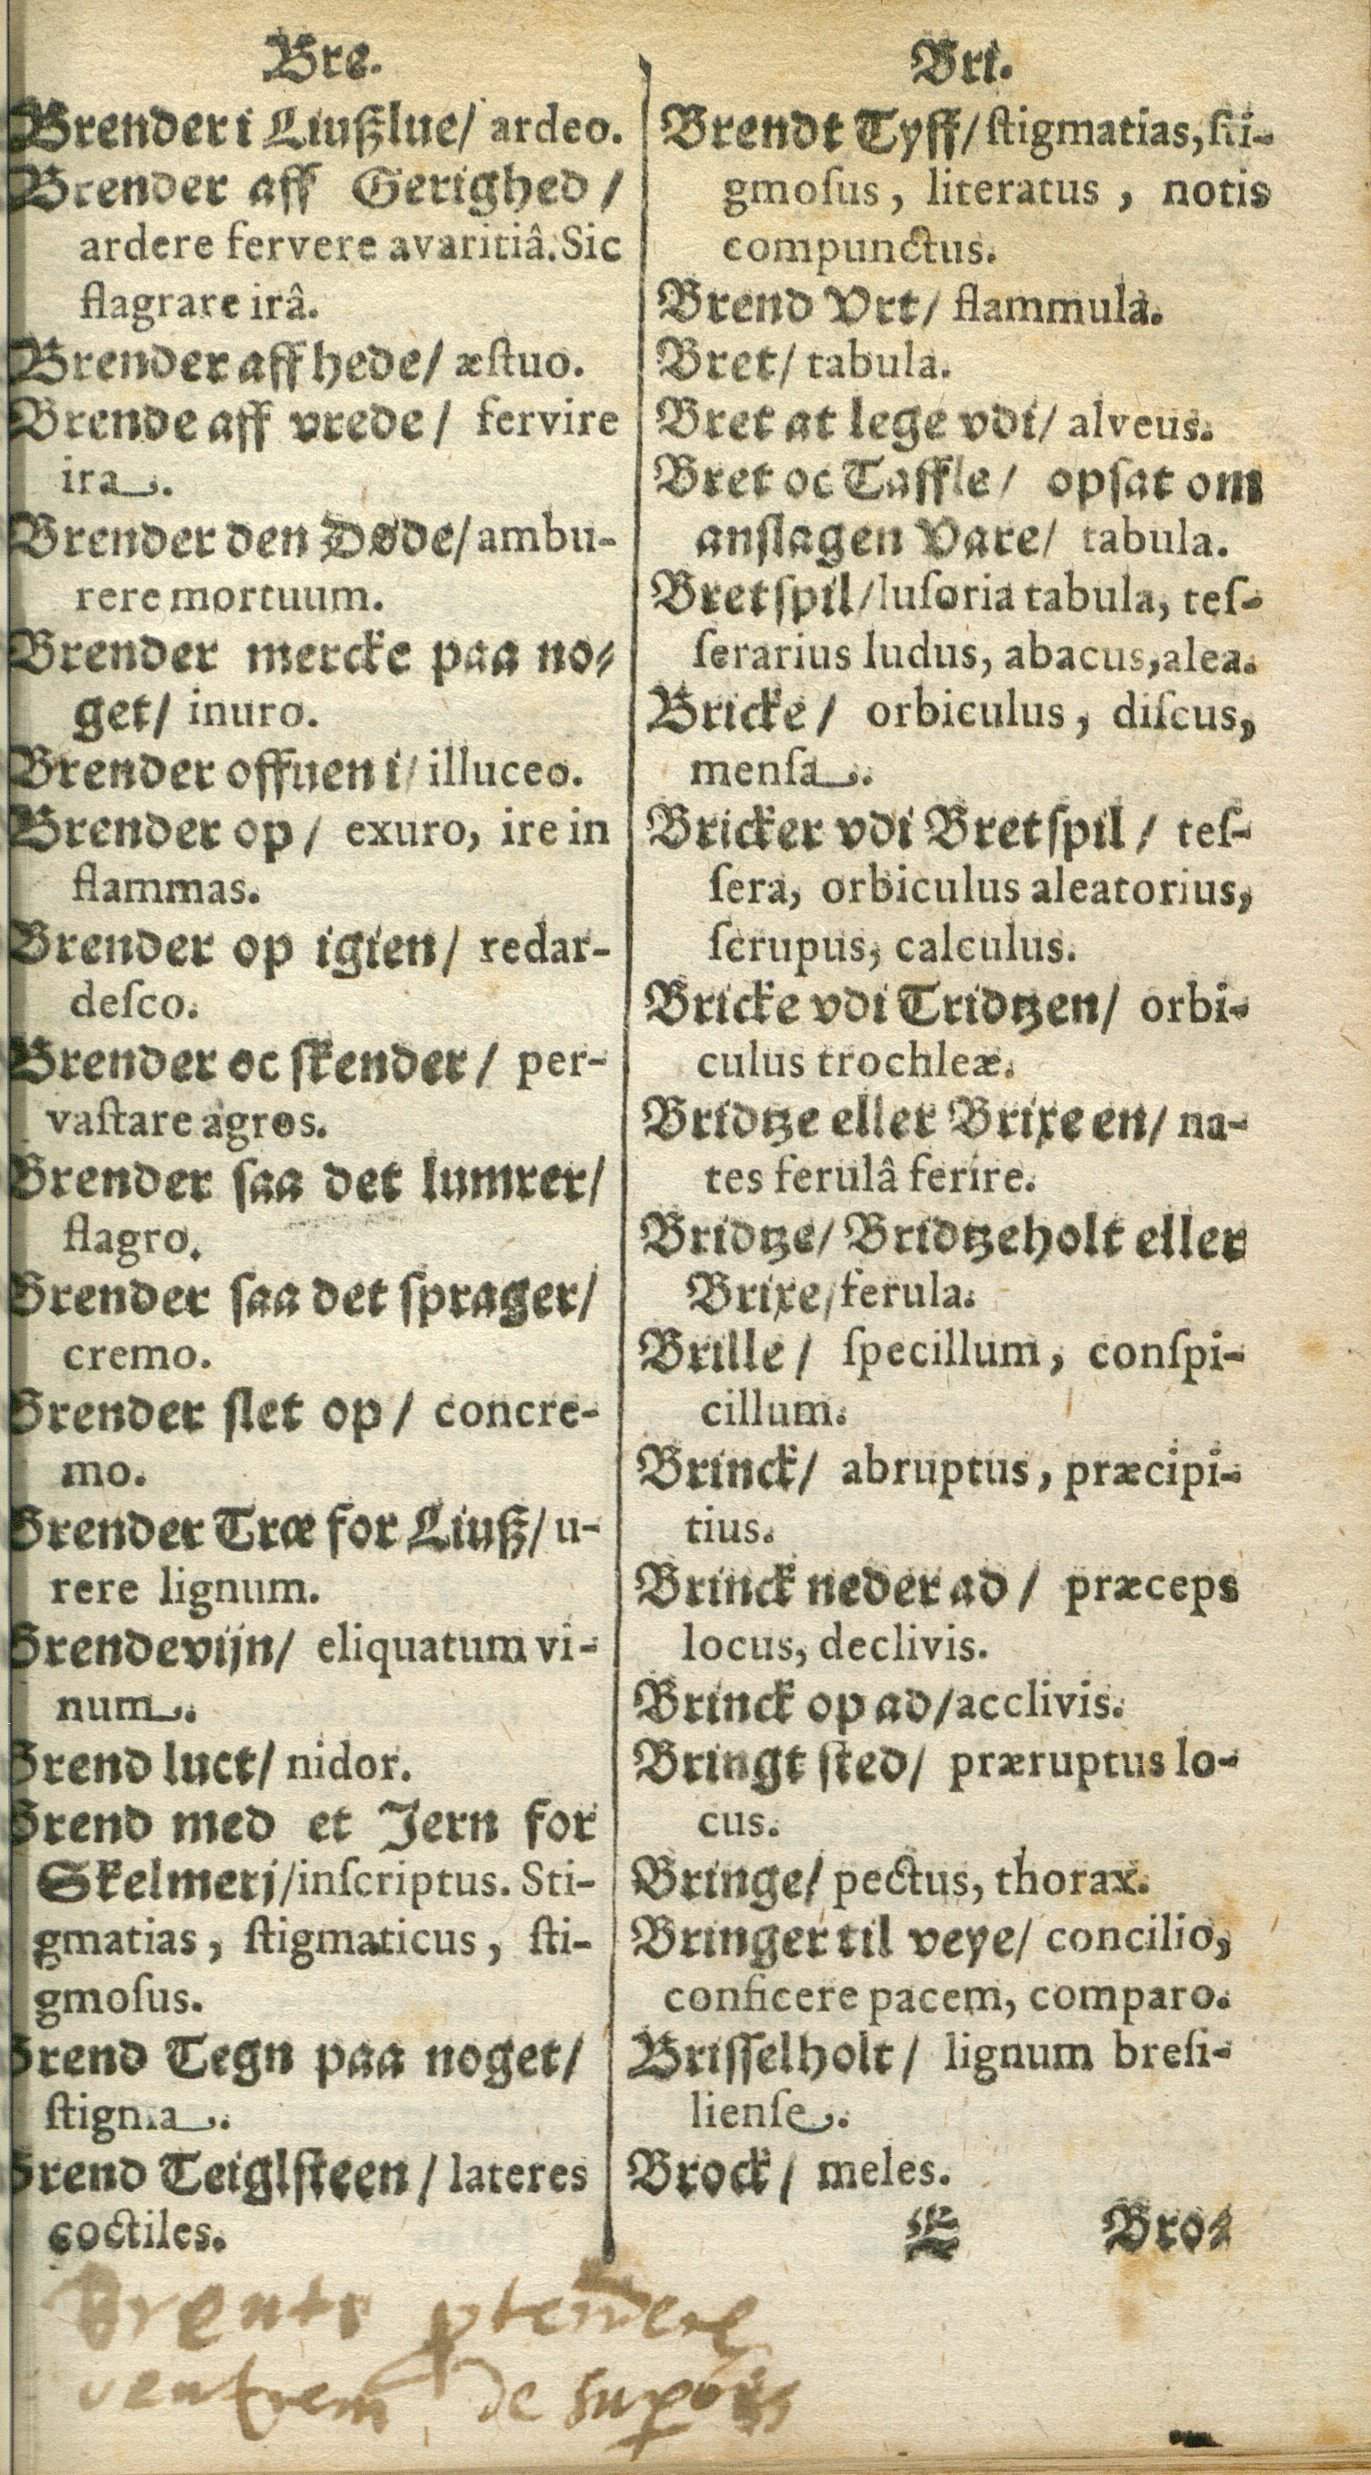 Bre.
Brender i Liußlue/ ardeo.
Brender aff Gerighed /
ardere fervere avaritiâ. Sic
flagrare irâ.
Brender aff hede/ æstuo.
Brende aff vrede / fervire
ira.
Brender den Døde/ ambu-
rere mortuum.
Brender mercke paa no-
get/ inuro.
Brender offuen i/ illuceo.
Brender op / exuro, ire in
flammas.
Brender op igien/ redar-
deſco.
Brender oc ſkender / per-
vaſtare agros.
Brender ſaa det lumrer/
flagro.
Brender ſaa det ſprager/
cremo.
Brender ſlet op / concre-
mo.
Brender Træ for Liuß/ u-
rere lignum.
Brendevijn/ eliquatum vi-
num.
Brend luct/ nidor.
Brend med et Jern for
Skelmeri/ inſcriptus. Sti-
gmatias, ſtigmaticus, ſti-
gmoſus.
Brend Tegn paa noget/
ſtigma.
Brend Teiglſteen / lateres
coctiles.
Bri.
Brendt Tyff/ ſtigmatias, ſti-
gmoſus, literatus, notis
compunctus.
Brend Vrt/ flammula.
Bret/ tabula.
Bret at lege vdi/ alveus.
Bret oc Taffle/ opſat om
anſlagen Vare/ tabula.
Bretſpil/ luſoria tabula, teſ-
ſerarius ludus, abacus, alea.
Bricke / orbiculus, diſcus,
menſa.
Bricker vdi Bretſpil / teſ-
ſera, orbiculus aleatorius,
ſcrupus, calculus.
Bricke vdi Tridtzen/ orbi-
culus trochleæ.
Bridtze eller Brixe en/ na-
tes ferulâ ferire.
Bridtze/ Bridtzeholt eller
Brixe/ ferula.
Brille / ſpecillum, conſpi-
cillum.
Brinck/ abruptus, præcipi-
tius.
Brinck neder ad / præceps
locus, declivis.
Brinck op ad/ acclivis.
Bringt ſted/ præruptus lo-
cus.
Bringe/ pectus, thorax.
Bringer til veye/ concilio,
conficere pacem, comparo.
Briſſelholt / lignum breſi-
lienſe.
Brock / meles.
E Bro-
ventrem de